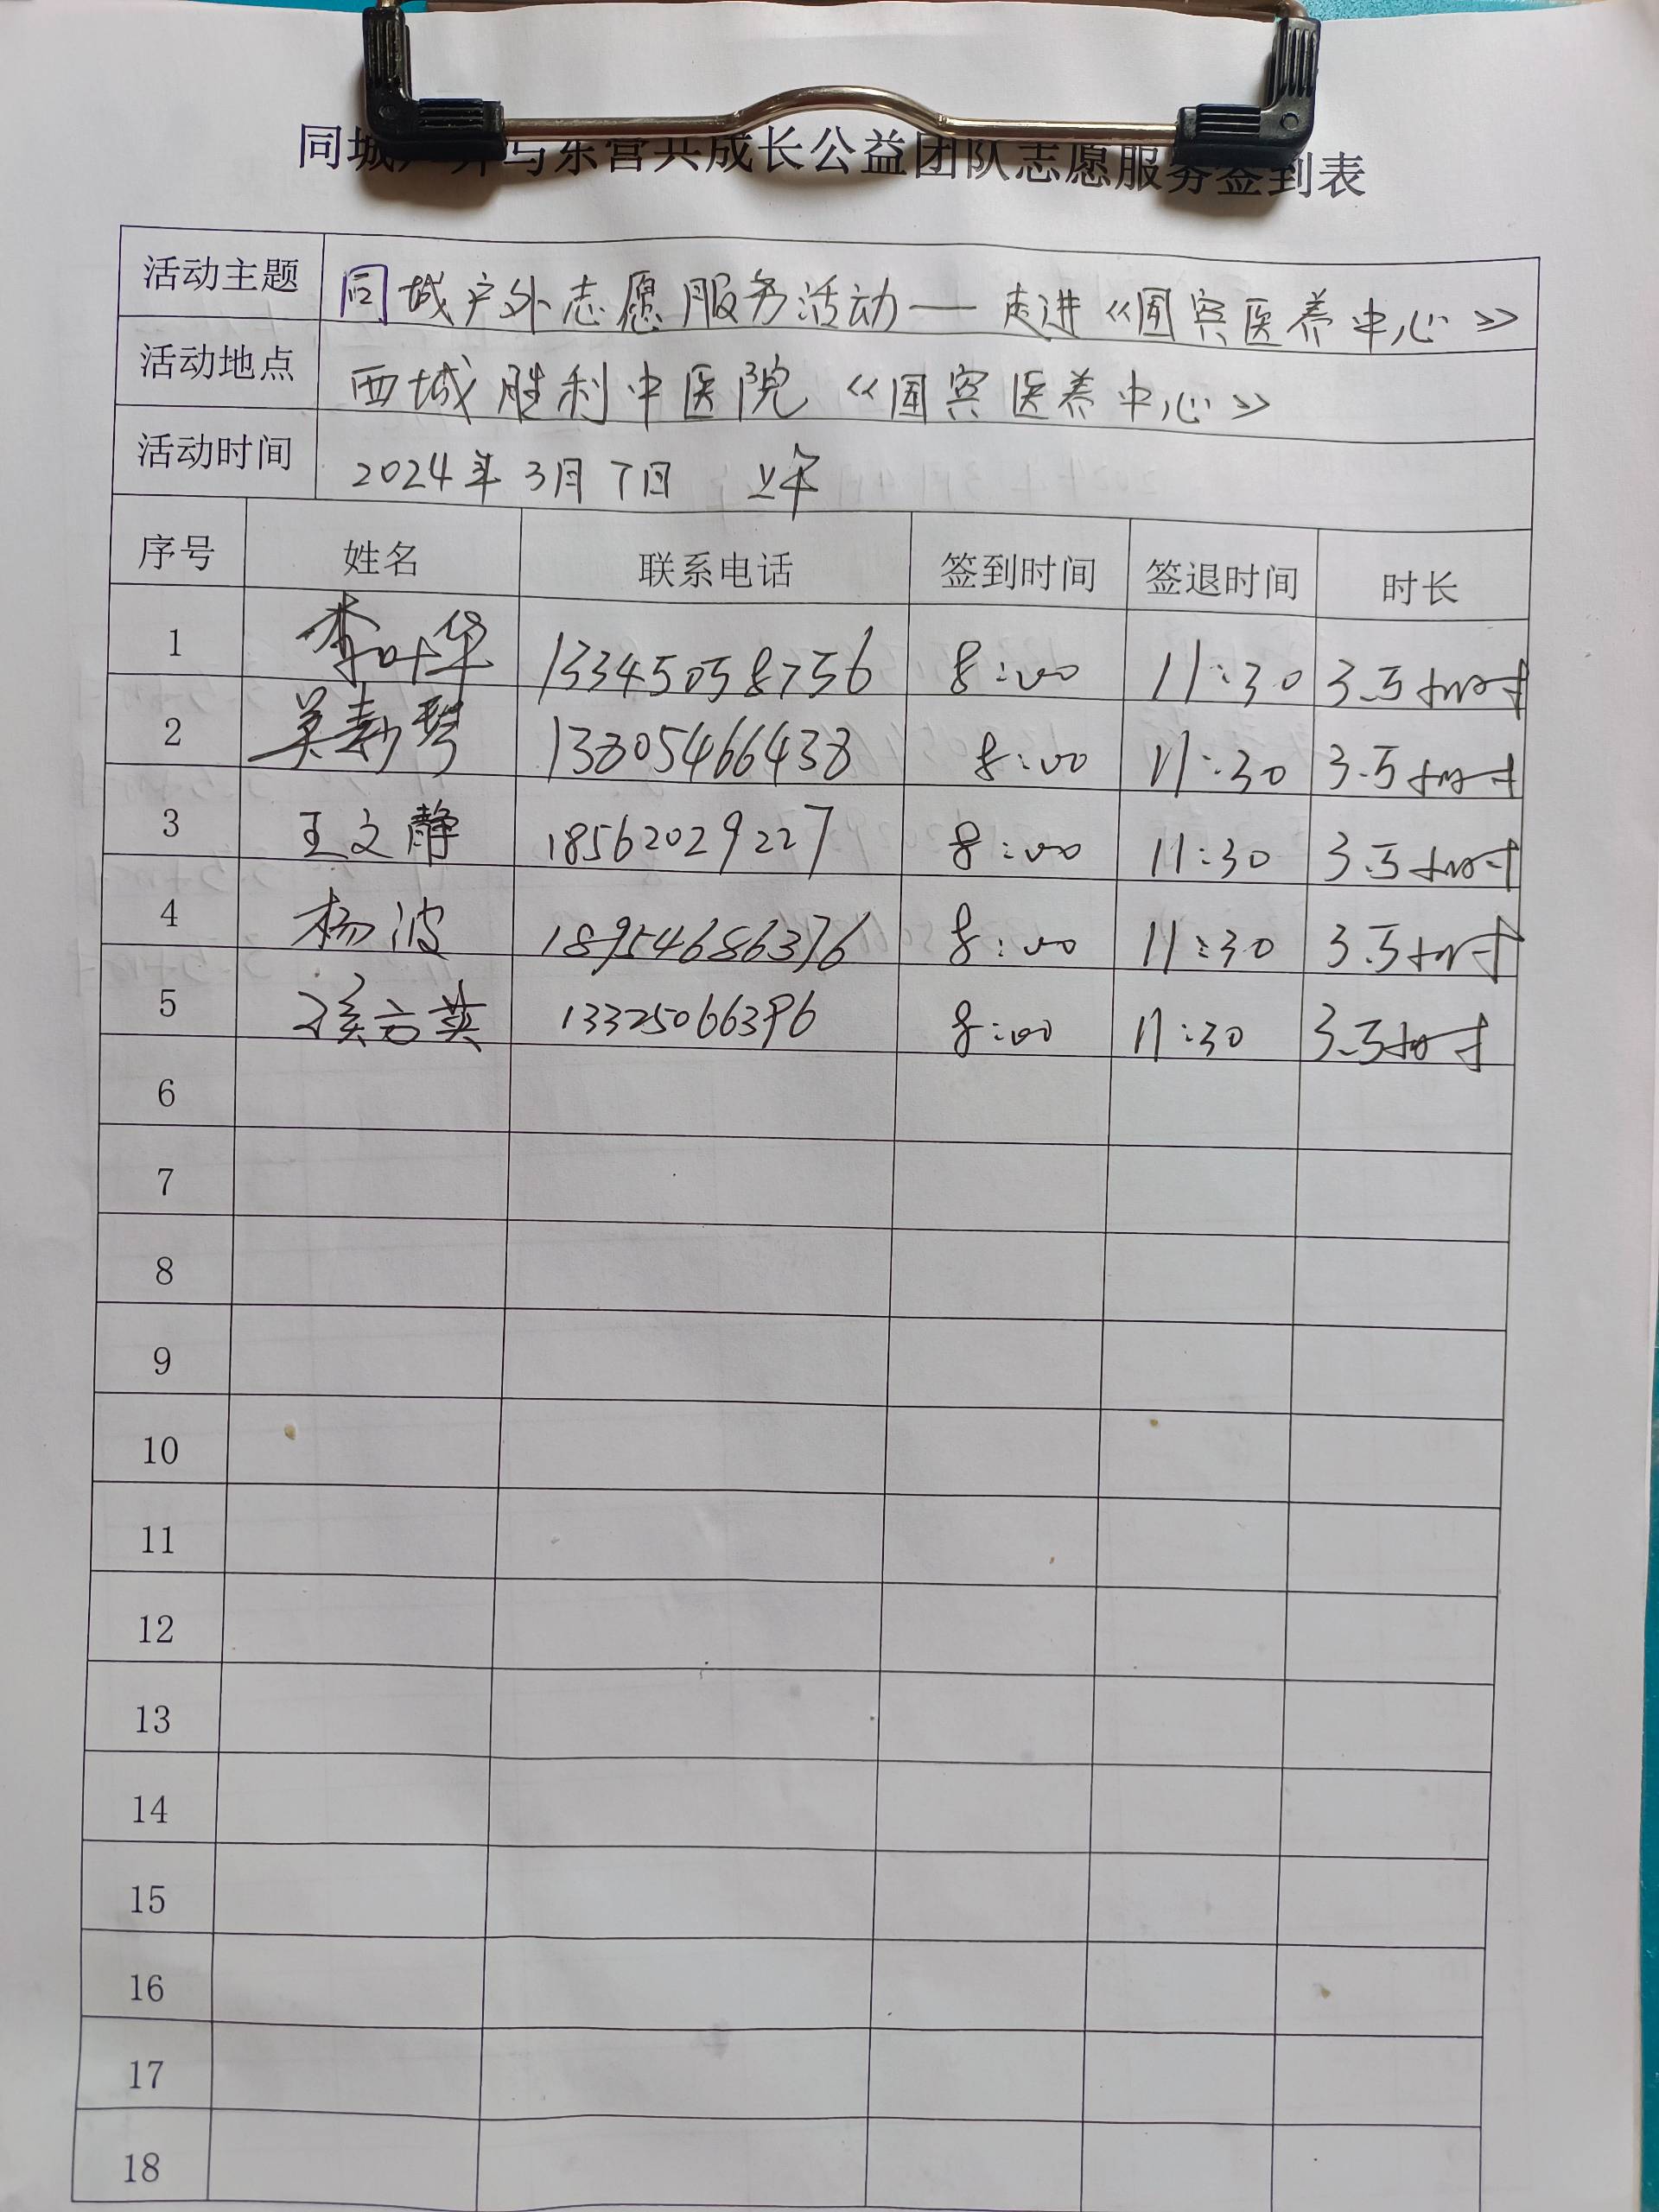 同城户外与东营共成长公益团队志愿服务签到表
活动主题 同城户外志愿服务活动——走进《国宾医养中心》
活动地点 西城胜利中医院《国宾医养中心》
活动时间 2024年3月7日 上午
序号 姓名 联系电话 签到时间 签退时间 时长
1 李叶华 13345058756 8:00 11:30 3.5小时
2 吴新琴 13805466438 8:00 11:30 3.5小时
3 王文静 18562029227 8:00 11:30 3.5小时
4 杨波 18954686376 8:00 11:30 3.5小时
5 侯云英 13325066396 8:00 11:30 3.5小时
6
7
8
9
10
11
12
13
14
15
16
17
18